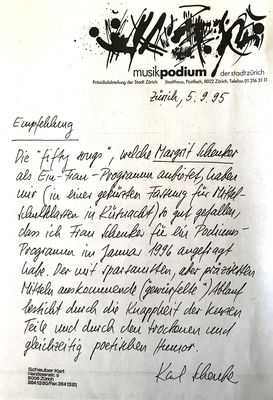 musikpodium der stadt zürich
Präsidialabteilung der Stadt Zürich Stadthaus, Postfach, 8022 Zürich, Telefon 01 216 31 11
Zürich, 5.9.95
Empfehlung
Die "fifty songs", welche Margrit Schenker
als Ein-Frau-Programm anbietet, haben
mir (in einer gekürzten Fassung für Mittel-
schulklassen in Küsnacht) so gut gefallen,
dass ich Frau Schenker für ein Podiums-
Programm im Januar 1996 angefragt
habe. Der mit sparsamsten, aber präzisesten
Mitteln auskommende ("gewürfelte") Ablauf
besticht durch die Knappheit der kurzen
Teile und durch den trockenen und
gleichzeitig poetischen Humor.
Karl
Scheuber Karl
8006 Zürich